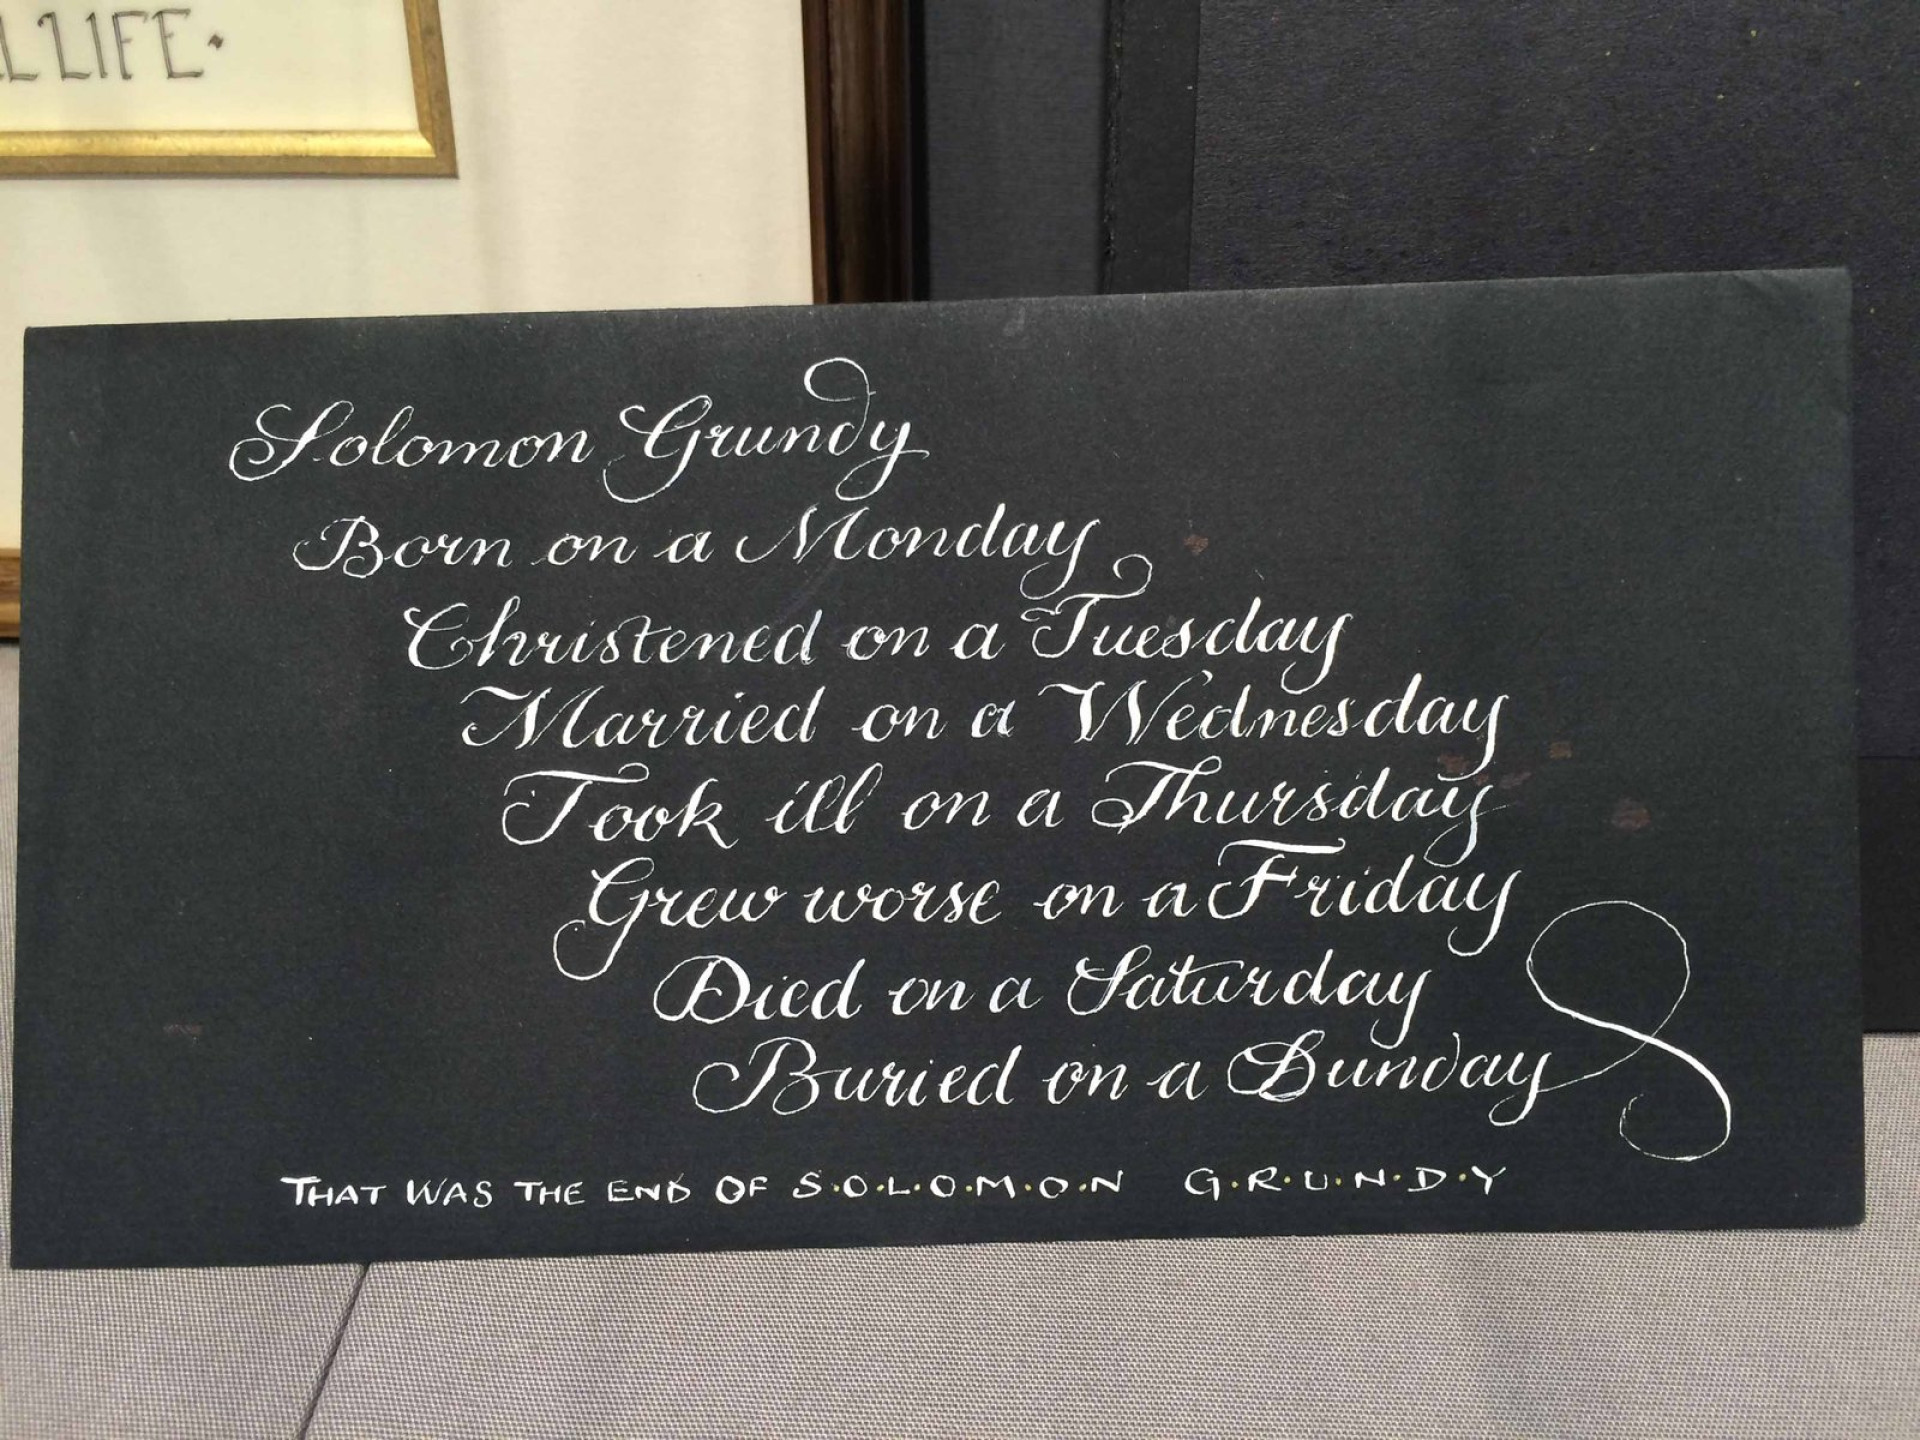 LIFE·
Solomon Grundy
Born on a Monday
Christened on a Tuesday
Married on a Wednesday
Took ill on a Thursday
Grew worse on a Friday
Died on a Saturday
Buried on a Sunday
THAT WAS THE END OF S·O·L·O·M·O·N G·R·U·N·D·Y